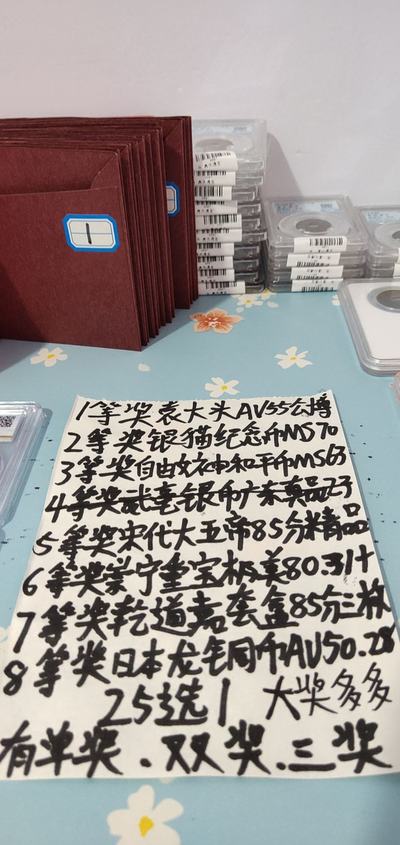 1
1等奖袁大头AU55公博
2等奖银猫纪念币MS70
3等奖自由女神和平币MS63
4等奖武毫银币广东真品23
5等奖宋代大五帝85分精品
6等奖崇宁重宝极美80 31
7等奖乾道嘉套盒85分三枚
8等奖日本龙银同币AU50.28
25选1 大奖多多
有单奖.双奖.三奖